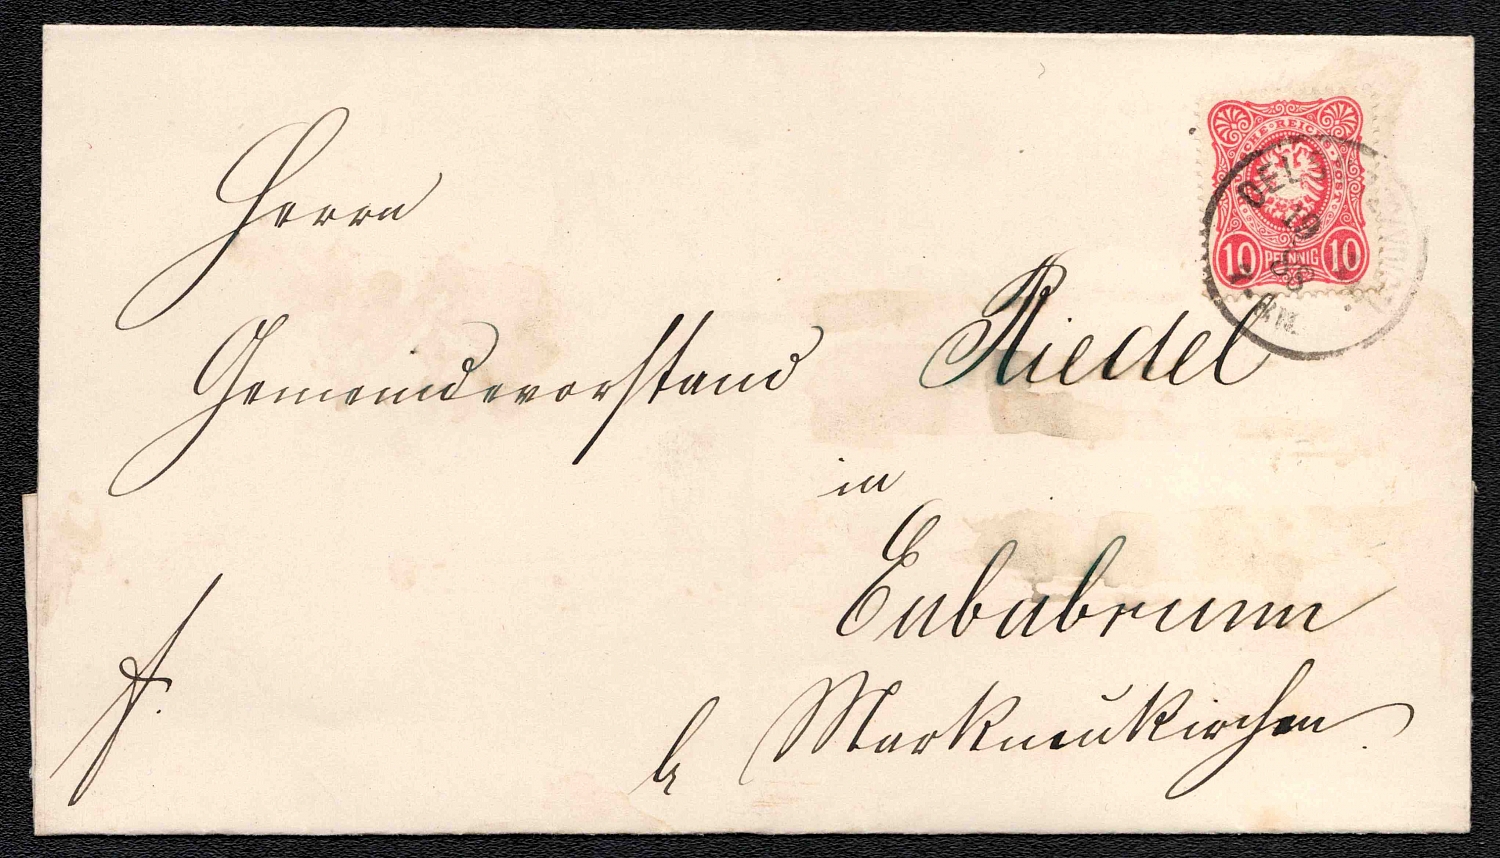 DEUTSCHE·REICHS·POST
10 PFENNIG 10
OEL
10
Herrn
Gemeindevorstand Riedel
in
Eubabrunn
f.
b Markneukirchen.